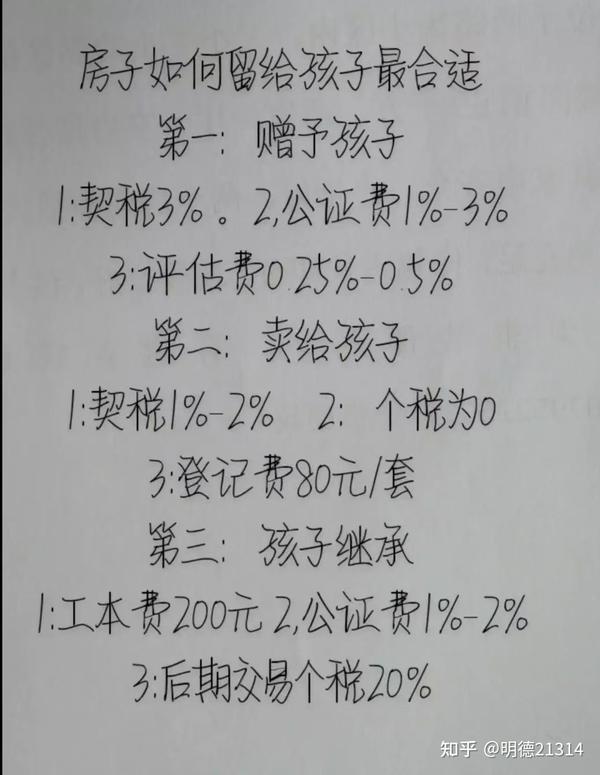 房子如何留给孩子最合适
第一: 赠予孩子
1:契税3%。2,公证费1%-3%
3:评估费0.25%-0.5%
第二: 卖给孩子
1:契税1%-2% 2: 个税为0
3:登记费80元/套
第三: 孩子继承
1:工本费200元 2,公证费1%-2%
3:后期交易个税20%
知乎 @明德21314